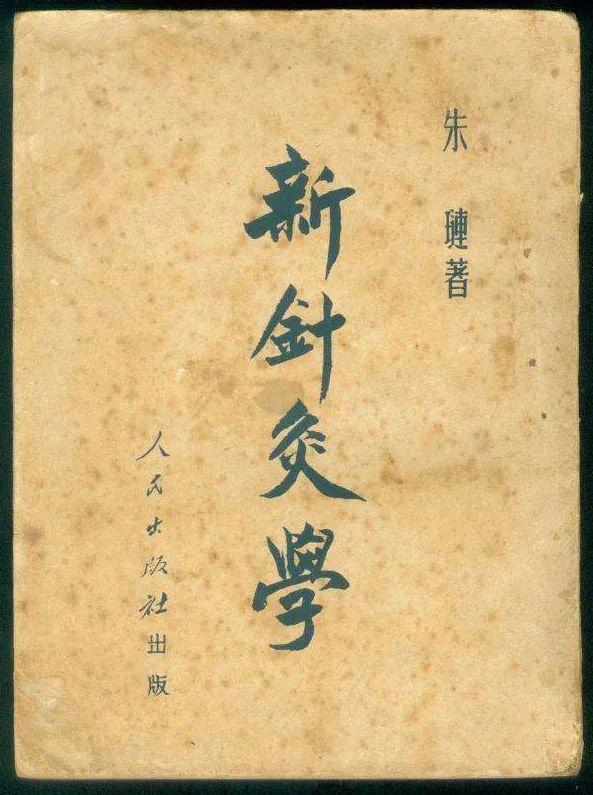 朱璉著
新針灸學
人民出版社出版